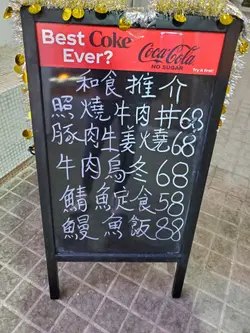 Best Coke
Ever?
Coca-Cola
NO SUGAR
Try it first!
和食推介
照燒牛肉丼68
豚肉生姜燒68
牛肉烏冬68
鯖魚定食58
鰻魚飯88